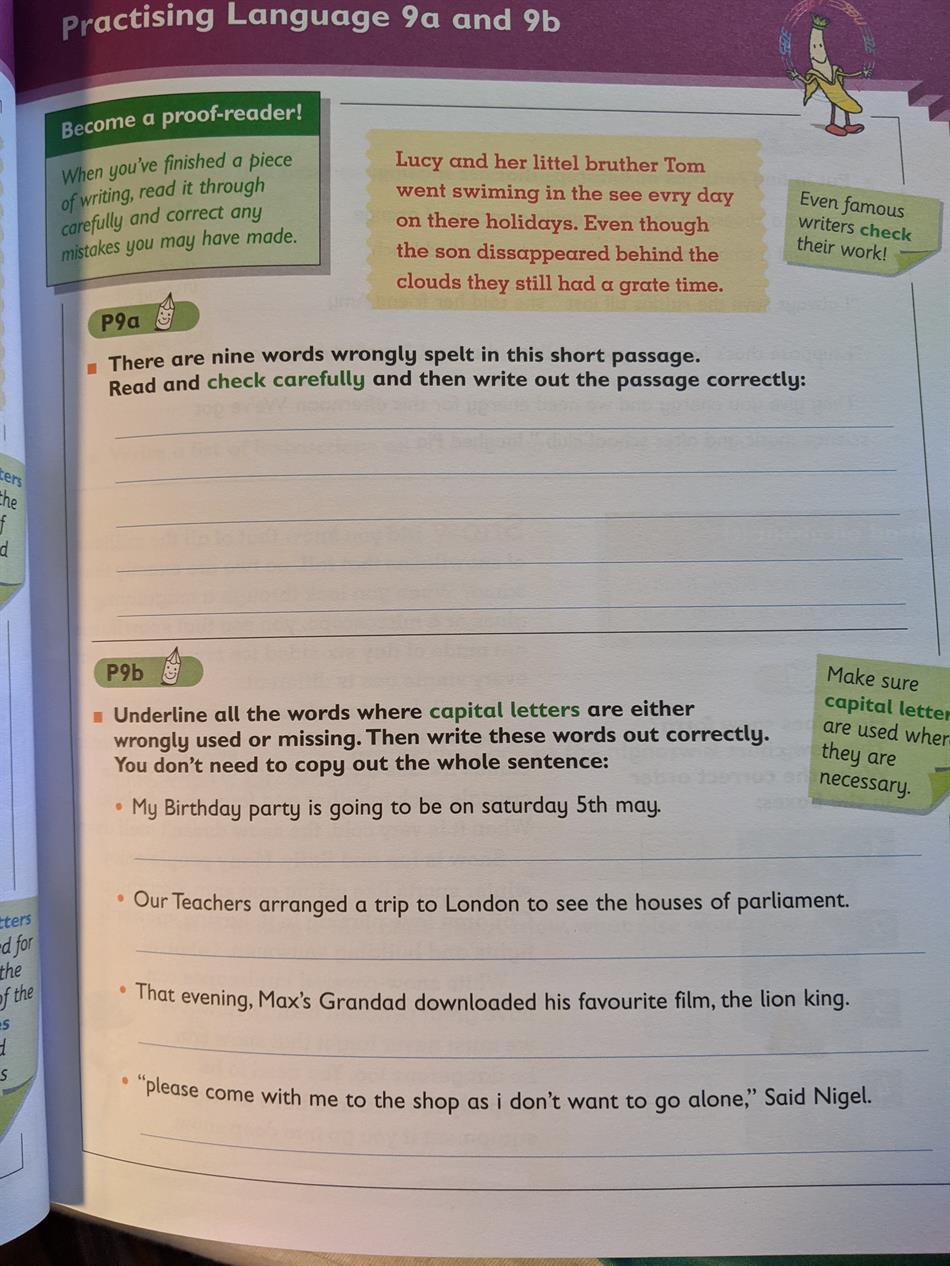 Practising Language 9a and 9b
Become a proof-reader!
When you've finished a piece
of writing, read it through
carefully and correct any
mistakes you may have made.
Lucy and her littel bruther Tom
went swiming in the see evry day
on there holidays. Even though
the son dissappeared behind the
clouds they still had a grate time.
Even famous
writers check
their work!
P9a
There are nine words wrongly spelt in this short passage.
Read and check carefully and then write out the passage correctly:
P9b
Underline all the words where capital letters are either
wrongly used or missing. Then write these words out correctly.
You don't need to copy out the whole sentence:
Make sure
capital letter
are used wher
they are
necessary.
• My Birthday party is going to be on saturday 5th may.
• Our Teachers arranged a trip to London to see the houses of parliament.
• That evening, Max's Grandad downloaded his favourite film, the lion king.
• "please come with me to the shop as i don't want to go alone," Said Nigel.
ters
the
f
d
tters
ed for
the
of the
s
d
s